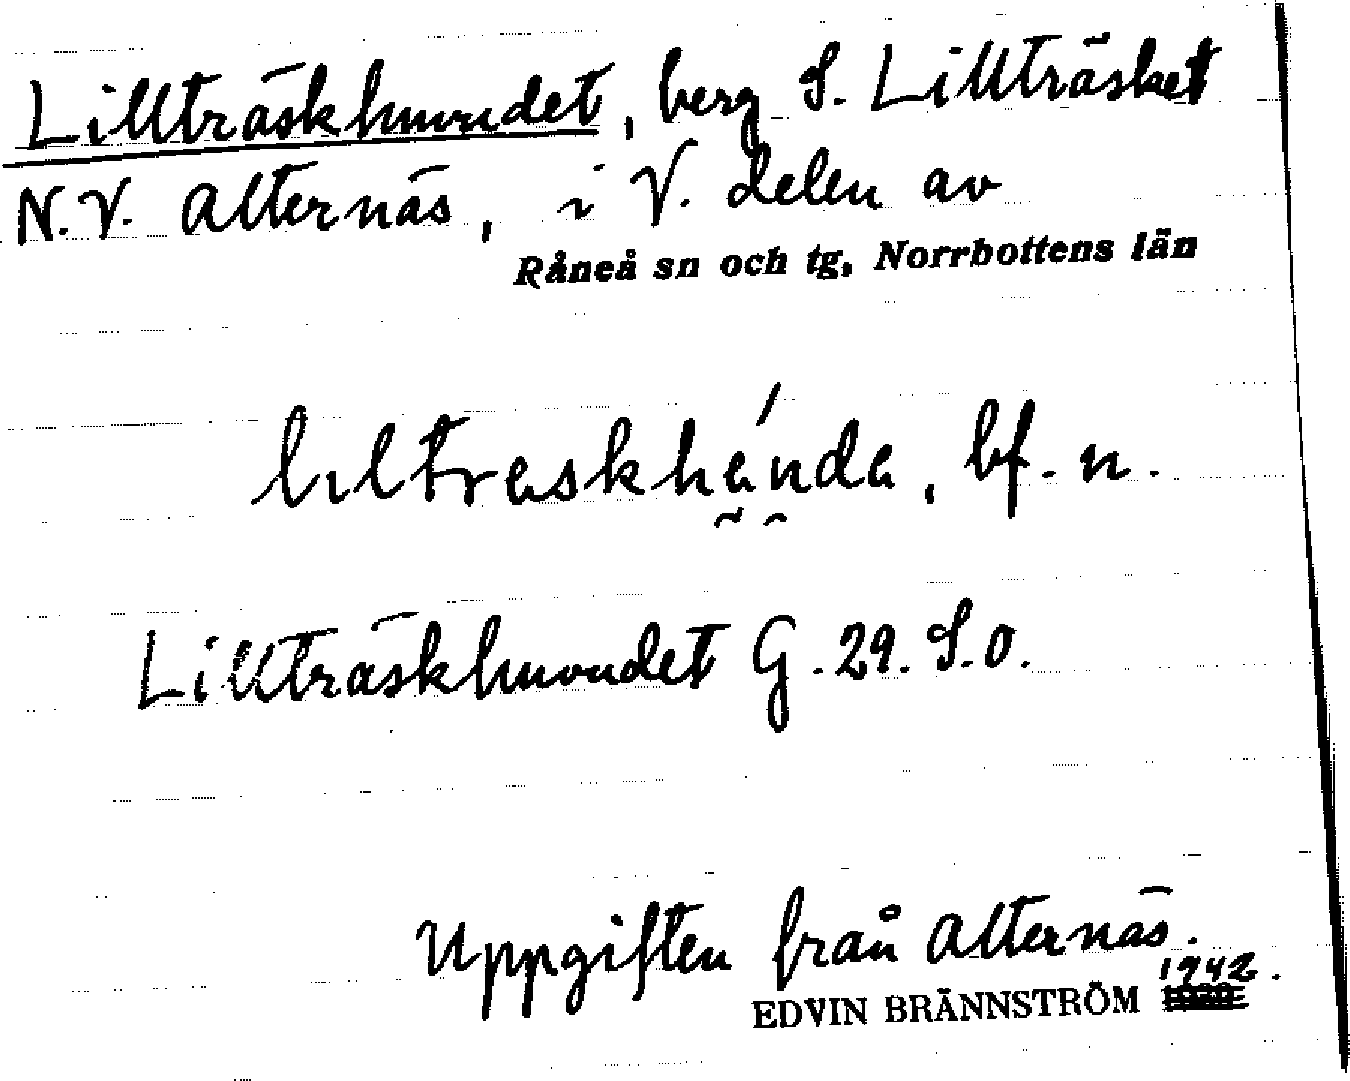 Lillträskhuvudet, berg S. Lillträsket
N.V. Alternäs, i V. delen av
Råneå sn och tg, Norrbottens län
bf. n.
Lillträskhuvudet G. 29. S.O.
Uppgiften från Alternäs.
EDVIN BRÄNNSTRÖM 1942.